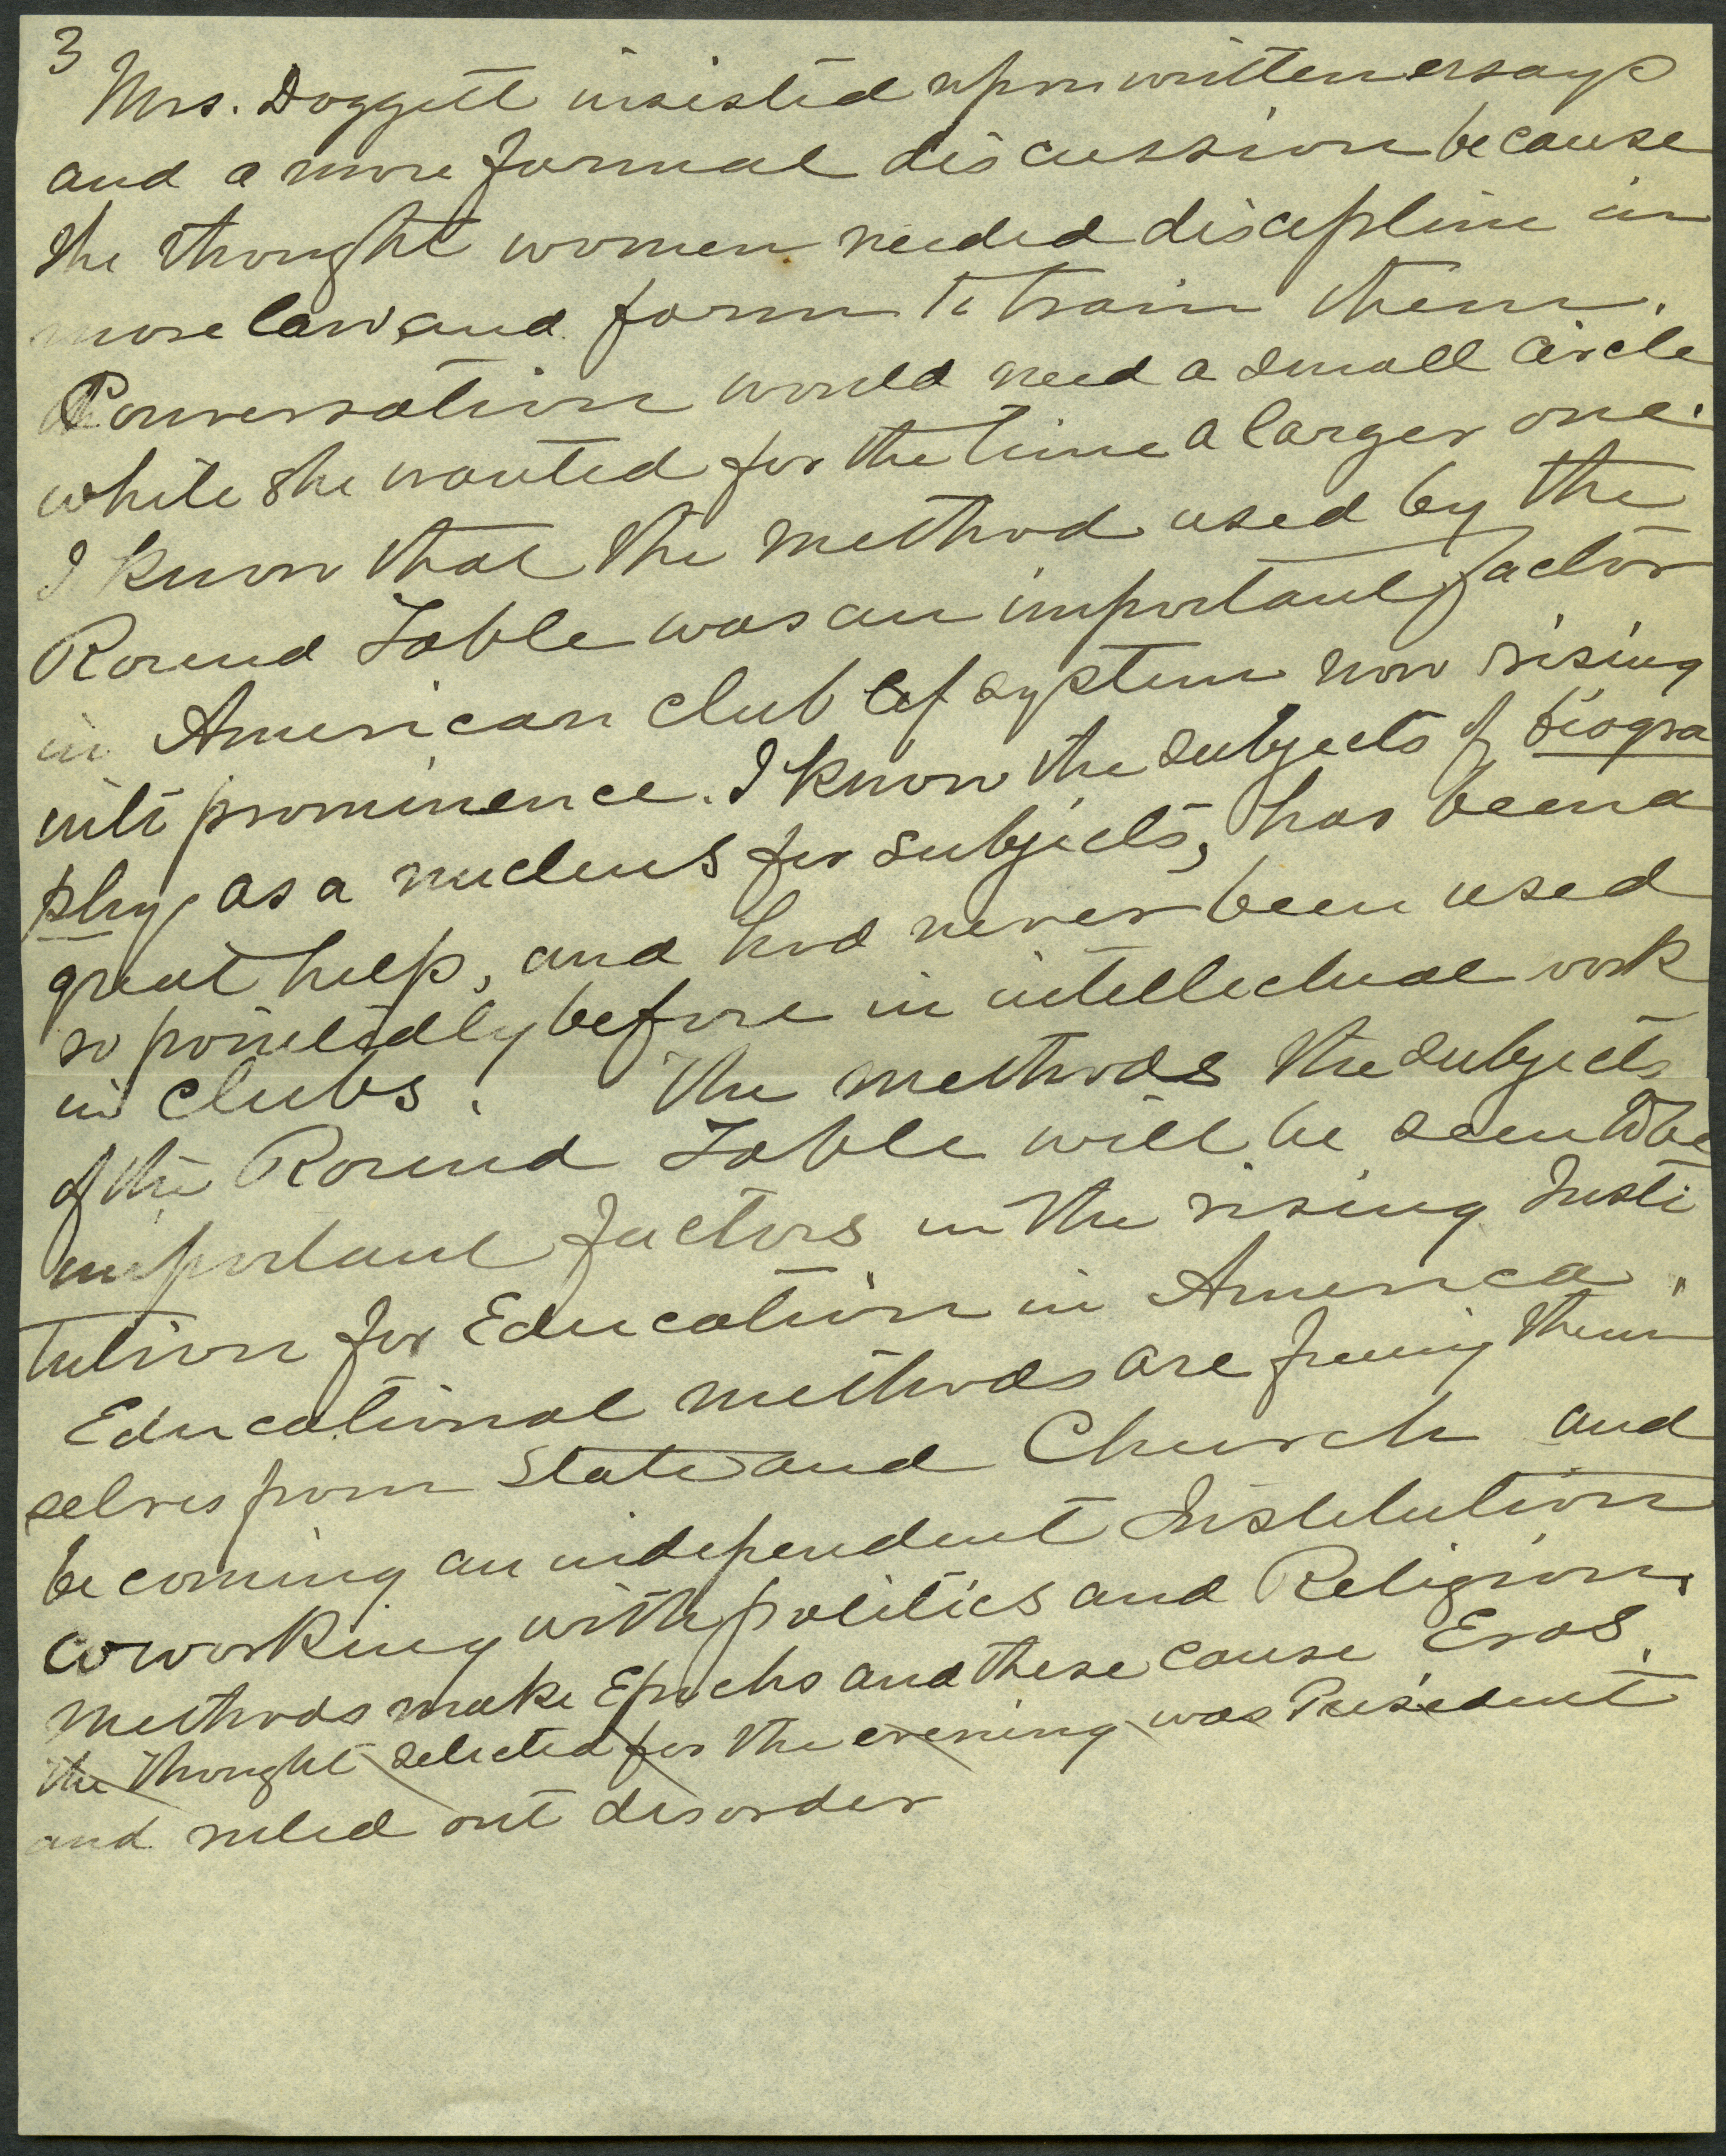 3
Mrs. Doggett insisted upon written essays
and a more formal discussion because
she thought women needed discipline in
more law and form to train them.
Conversation would need a small circle
while she wanted for the time a larger one.
I know that the method used by the
Round Table was an important factor
in American club life system now rising
into prominence. I know the subjects of biogra
phy, as a nucleus for subjects, has been a
great help, and had never been used
so pointedly before in intellectual work
in clubs. The methods the subjects
of the Round Table will be seen to be
important factors in the rising Insti
tution for Education in America.
Educational methods are freeing them
selves from State and Church and
becoming an independent Institution
coworking with politics and Religion.
Methods make Epochs and these cause Eras.
The thought selected for the evening was President
and ruled out disorder